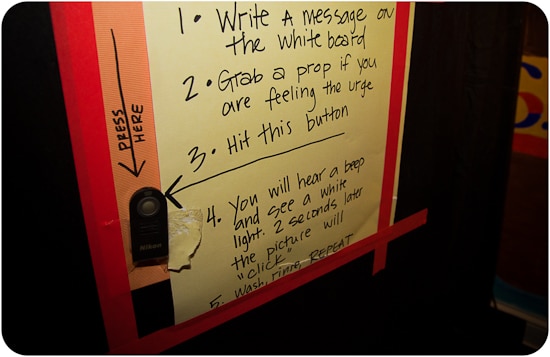 1. Write A message on
the white board
2. Grab a prop if you
are feeling the urge
3. Hit this button
PRESS
HERE
Nikon
4. You will hear a beep
and see a white
light. 2 seconds later
the picture will
"click"
5. Wash, rinse, REPEAT